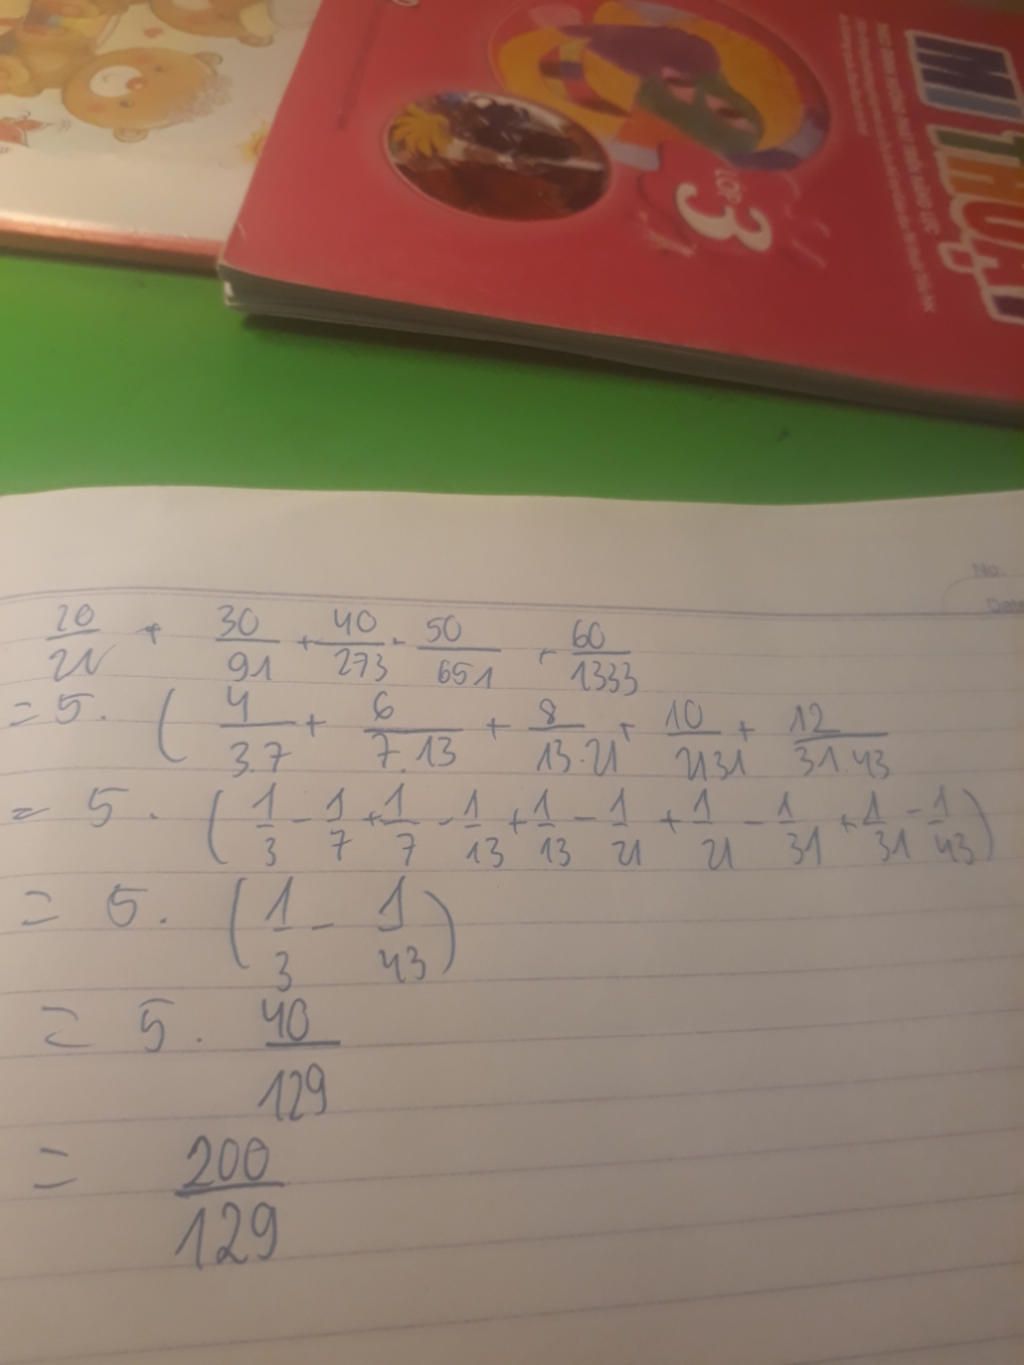 MĨ THUẬT
LỚP
3
No.
Date
20/21 + 30/91 + 40/273 + 50/651 + 60/1333
= 5. (4/3.7 + 6/7.13 + 8/13.21 + 10/21.31 + 12/31.43
= 5. (1/3 - 1/7 + 1/7 - 1/13 + 1/13 - 1/21 + 1/21 - 1/31 + 1/31 - 1/43)
= 5. (1/3 - 1/43)
= 5. 40/129
= 200/129